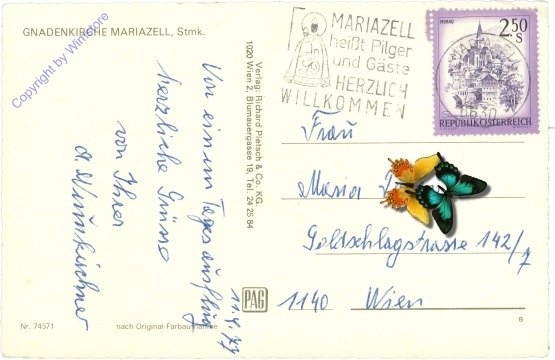 GNADENKIRCHE MARIAZELL, Stmk.
Copyright by Winstore
Von einem Tagesausflug
herzliche Grüsse
von Ihrer
11.9.77
Nr. 74571
nach Original-Farbaufnahme
Verlag: Richard Pietsch & Co. KG.
1020 Wien 2, Blumauergasse 19, Tel. 24 25 84
PAG
MARIAZELL
heißt Pilger
und Gäste
HERZLICH
WILLKOMMEN
MURAU
2.50
S
REPUBLIK ÖSTERREICH
8630
Frau
Maria
Goldschlagstrasse 142/7
1140 Wien
B